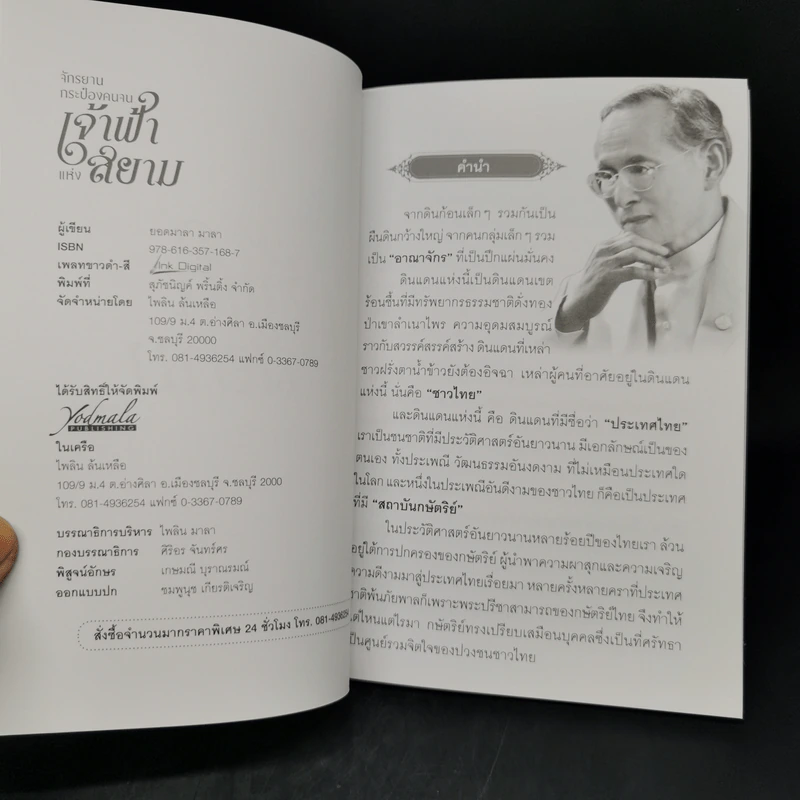 จักรยาน
กระป๋องคนจน
เจ้าฟ้า
แห่ง สยาม
ผู้เขียน ยอดมาลา มาลา
ISBN 978-616-357-168-7
เพลทขาวดำ-สี Ink Digital
พิมพ์ที่ สุภัชนิญค์ พริ้นติ้ง จำกัด
จัดจำหน่ายโดย ไพลิน ล้นเหลือ
109/9 ม.4 ต.อ่างศิลา อ.เมืองชลบุรี
จ.ชลบุรี 20000
โทร. 081-4936254 แฟกซ์ 0-3367-0789
ได้รับสิทธิ์ให้จัดพิมพ์
Yodmala
PUBLISHING
ในเครือ
ไพลิน ล้นเหลือ
109/9 ม.4 ต.อ่างศิลา อ.เมืองชลบุรี จ.ชลบุรี 2000
โทร. 081-4936254 แฟกซ์ 0-3367-0789
บรรณาธิการบริหาร ไพลิน มาลา
กองบรรณาธิการ ศิริอร จันทร์ศร
พิสูจน์อักษร เกษมณี บุราณรมณ์
ออกแบบปก ชมพูนุช เกียรติเจริญ
สั่งซื้อจำนวนมากราคาพิเศษ 24 ชั่วโมง โทร. 081-4936254
คำนำ
จากดินก้อนเล็ก ๆ รวมกันเป็น
ผืนดินกว้างใหญ่ จากคนกลุ่มเล็ก ๆ รวม
เป็น “อาณาจักร” ที่เป็นปึกแผ่นมั่นคง
ดินแดนแห่งนี้เป็นดินแดนเขต
ร้อนชื้นที่มีทรัพยากรธรรมชาติดั่งทอง
ป่าเขาลำเนาไพร ความอุดมสมบูรณ์
ราวกับสวรรค์สรรค์สร้าง ดินแดนที่เหล่า
ชาวฝรั่งตาน้ำข้าวยังต้องอิจฉา เหล่าผู้คนที่อาศัยอยู่ในดินแดน
แห่งนี้ นั่นคือ “ชาวไทย”
และดินแดนแห่งนี้ คือ ดินแดนที่มีชื่อว่า “ประเทศไทย”
เราเป็นชนชาติที่มีประวัติศาสตร์อันยาวนาน มีเอกลักษณ์เป็นของ
ตนเอง ทั้งประเพณี วัฒนธรรมอันงดงาม ที่ไม่เหมือนประเทศใด
ในโลก และหนึ่งในประเพณีอันดีงามของชาวไทย ก็คือเป็นประเทศ
ที่มี “สถาบันกษัตริย์”
ในประวัติศาสตร์อันยาวนานหลายร้อยปีของไทยเรา ล้วน
อยู่ใต้การปกครองของกษัตริย์ ผู้นำพาความผาสุกและความเจริญ
ความดีงามมาสู่ประเทศไทยเรื่อยมา หลายครั้งหลายคราที่ประเทศ
ชาติพ้นภัยพาลก็เพราะพระปรีชาสามารถของกษัตริย์ไทย จึงทำให้
แต่ไหนแต่ไรมา กษัตริย์ทรงเปรียบเสมือนบุคคลซึ่งเป็นที่ศรัทธา
เป็นศูนย์รวมจิตใจของปวงชนชาวไทย